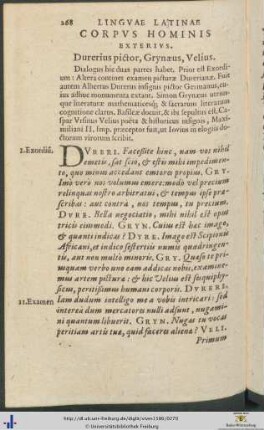 268 LINGVAE LATINAE
CORPVS HOMINIS
EXTERIVS.
Durerius pictor, Grynæus, Velius.
Dialogus hic duas partes habet. Prior est Exordi-
um: Altera continet examen picturæ Durerianæ. Fuit
autem Albertus Durerus insignis pictor Germanus, cu-
ius adhuc monumenta extant. Simon Grynæus utrius-
que literaturæ mathematicésq; & sacrarum literarum
cognitione clarus, Basileæ docuit, & ibi sepultus est. Cas-
par Vrsinus Velius poëta & historicus insignis, Maxi-
miliani II. Imp. præceptor fuit, ut Iovius in elogiis do-
ctorum virorum scribit.
1. Exordiũ. DVRERI. Facessite hinc, nam vos nihil
emetis, sat scio, & estis mihi impedimen-
to, quo minus accedant emtores propius. GRY.
Imò verò nos volumus emere: modò vel precium
relinquas nostro arbitratui, & tempus ipse præ-
scribas: aut contrà, nos tempus, tu precium.
DVRE. Bella negotiatio, mihi nihil est opus
tricis eiusmodi. GRYN. Cuius est hæc imago,
& quanti indicas? DVRE. Imago est Scipionis
Africani, et indico sestertiis numis quadringen-
tis, aut non multò minoris. GRY. Quæso te pri-
usquam verbo uno eam addicas nobis, examine-
mus artem pictura: & hic Velius est semiphysi-
cus, peritissimus humani corporis. DVRERI.
11. Examen Iam dudum intelligo me a vobis intricari: sed
interea dum mercatores nulli adsunt, nugami-
ni quantum libuerit. GRYN. Nugas tu vocas
peritiam artis tuæ, quid faceres alienæ? VELI.
Primum
http://dl.ub.uni-freiburg.de/diglit/vives1588/0278
© Universitätsbibliothek Freiburg